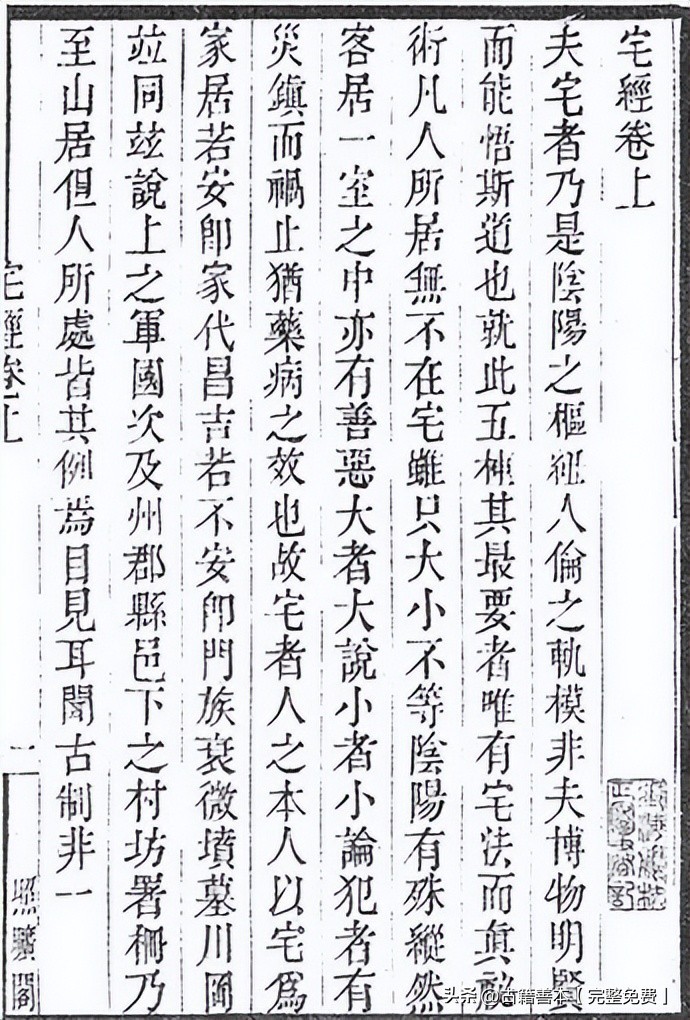 宅經卷上
夫宅者乃是陰陽之樞紐人倫之軌模非夫博物明賢
而能悟斯道也就此五種其最要者唯有宅法而真祕
術凡人所居無不在宅雖只大小不等陰陽有殊縱然
客居一室之中亦有善惡大者大說小者小論犯者有
災鎮而禍止猶藥病之效也故宅者人之本人以宅為
家居若安卽家代昌吉若不安卽門族衰微墳墓川岡
竝同兹說上之軍國次及州郡縣邑下之村坊署柵乃
至山居但人所處皆其例焉目見耳聞古制非一
宅經卷上
一
照曠閣
头条@古籍善本【完整免费】